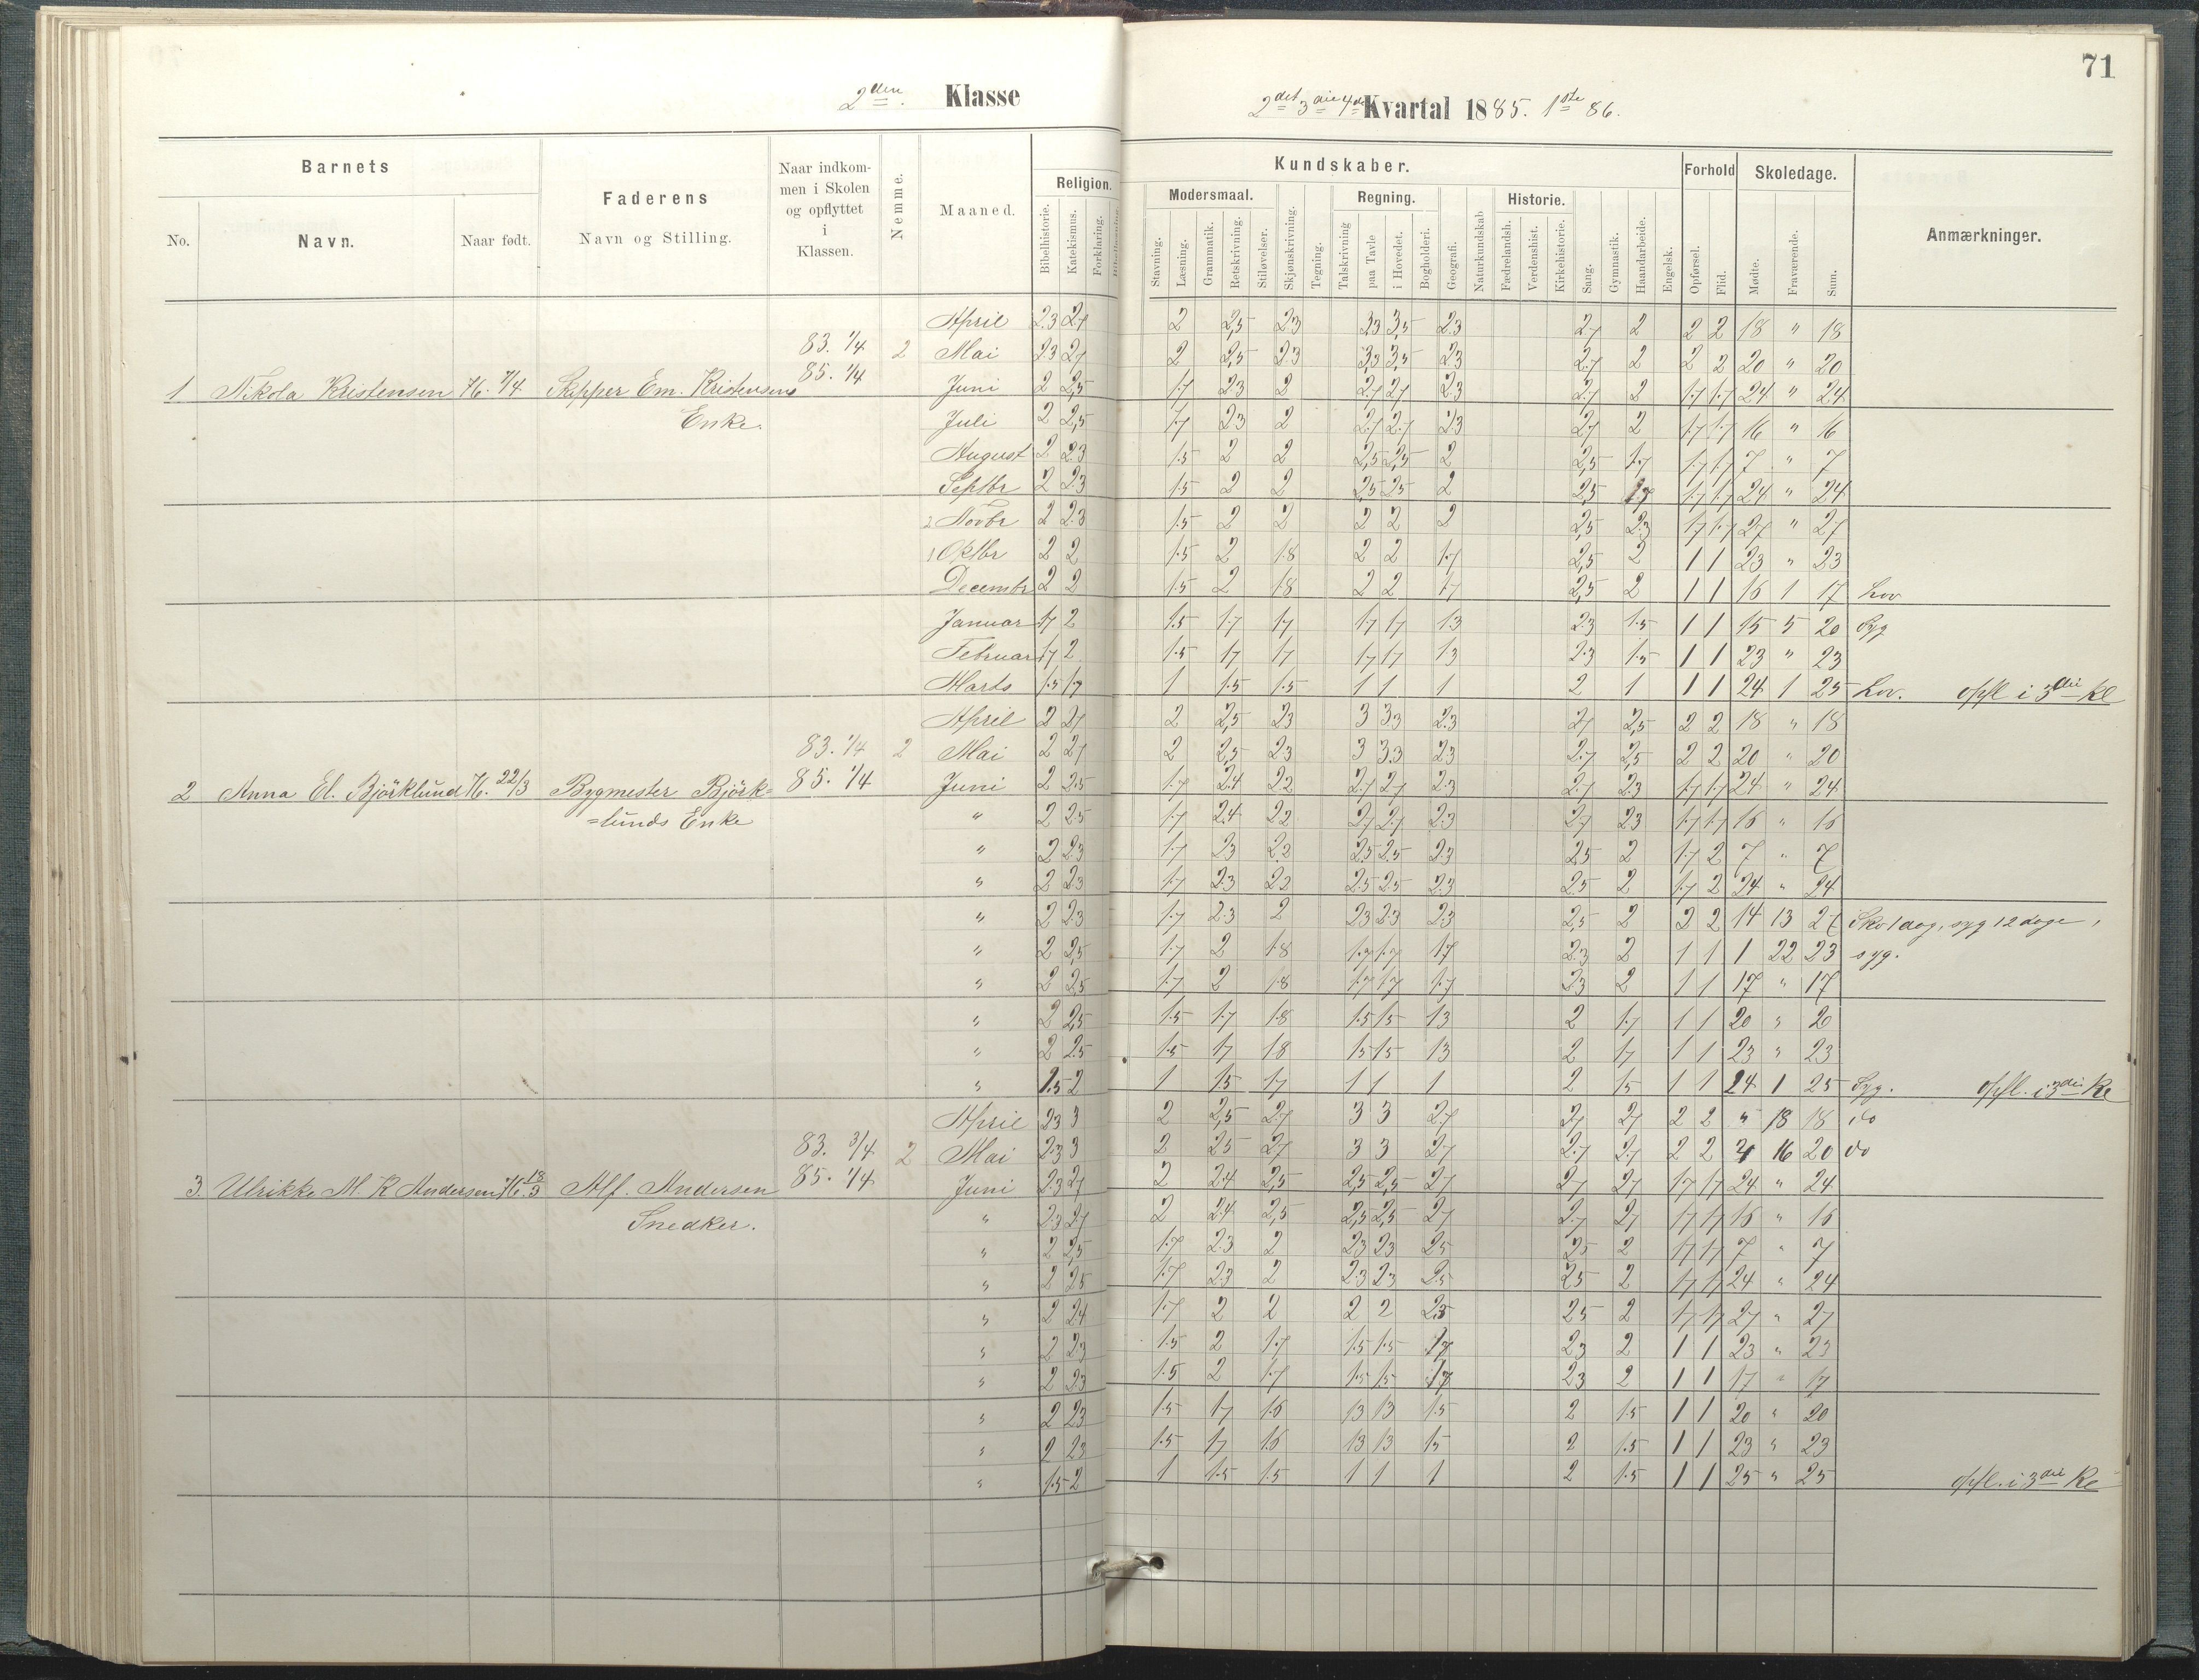 71
2den. Klasse
2det 3die 4de Kvartal 1885. 1ste 86.
Barnets
Faderens
Naar indkommen i Skolen og opflyttet i Klassen.
Nemme.
Maaned.
Religion.
Kundskaber.
Forhold
Skoledage.
Anmærkninger.
No.
Navn.
Naar født.
Navn og Stilling.
Bibelhistorie.
Katekismus.
Forklaring.
Modersmaal.
Regning.
Historie.
Stavning.
Læsning.
Grammatik.
Retskrivning.
Stiløvelser.
Skjønskrivning.
Tegning.
Talskrivning
paa Tavle
i Hovedet.
Bogholderi.
Geografi.
Naturkundskab
Fædrelandsh.
Verdenshist.
Kirkehistorie.
Sang.
Gymnastik.
Haandarbeide.
Engelsk.
Opførsel.
Flid.
Mødte.
Fraværende.
Sum.
April 2.3 2.7 2 2,5 2.3 3.3 3,5 2.3 2.7 2 2 2 18 " 18
83. 1/4 2 Mai 2.3 2.7 2 2,5 2.3 3,3 3,5 2.3 2.7 2 2 2 20 " 20
85. 1/4
1 Nikola Kristensen 76. 7/4 Skipper Em. Kristensens Juni 2 2,5 1.7 2.3 2 2.7 2.7 2.3 2.7 2 1.7 1.7 24 " 24
Enke. Juli 2 2,5 1.7 2.3 2 2.7 2.7 2.3 2.7 2 1.7 1.7 16 " 16
August 2 2.3 1.5 2 2 2,5 2,5 2 2,5 1.7 1.7 1.7 7 " 7
Septbr 2 2.3 1.5 2 2 2,5 2.5 2 2.5 1.7 1.7 1.7 24 " 24
2 Novbr 2 2.3 1.5 2 2 2 2 2 2,5 2.3 1.7 1.7 27 " 27
1 Oktbr 2 2 1.5 2 1.8 2 2 1.7 2,5 2 1 1 23 " 23
Decembr 2 2 1.5 2 1.8 2 2 1.7 2,5 2 1 1 16 1 17 Lov
Januar 1.7 2 1.5 1.7 1.7 1.7 1.7 1.3 2.3 1.5 1 1 15 5 20 Syg
Februar 1.7 2 1.5 1.7 1.7 1.7 1.7 1.3 2.3 1.5 1 1 23 " 23
Marts 1.5 1.7 1 1.5 1.5 1 1 1 2 1 1 1 24 1 25 Lov. opfl i 3die Kl
April 2 2.7 2 2,5 2.3 3 3.3 2.3 2.7 2,5 2 2 18 " 18
83. 1/4 2 Mai 2 2.7 2 2,5 2.3 3 3.3 2.3 2.7 2,5 2 2 20 " 20
85. 1/4
2 Anna El. Björklund 76. 22/3 Bygmester Björk= Juni 2 2.5 1.7 2.4 2.2 2.7 2.7 2.3 2.7 2.3 1.7 1.7 24 " 24
=lunds Enke " 2 2.5 1.7 2.4 2.2 2.7 2.7 2.3 2.7 2.3 1.7 1.7 16 " 16
" 2 2.3 1.7 2.3 2.2 2.5 2.5 2.3 2.5 2 1.7 2 7 " 7
" 2 2.3 1.7 2.3 2.2 2.5 2.5 2.3 2.5 2 1.7 2 24 " 24
" 2 2.3 1.7 2.3 2 2.3 2.3 2.3 2,5 2 2 2 14 13 27 Sko 1 dag, syg 12 dage
" 2 2,5 1.7 2 1.8 1.7 1.7 1.7 2.3 2 1 1 1 22 23 syg.
" 2 2,5 1.7 2 1.8 1.7 1.7 1.7 2.3 2 1 1 17 " 17
" 2 2,5 1.5 1.7 1.8 1.5 1.5 1.3 2 1.7 1 1 20 " 20
" 2 2.5 1.5 1.7 1.8 1.5 1.5 1.3 2 1.7 1 1 23 " 23
" 1.5 2 1 1.5 1.7 1 1 1 2 1.5 1 1 24 1 25 Syg. opfl. i 3die Kl
April 2.3 3 2 2,5 2.7 3 3 2.7 2.7 2.7 2 2 " 18 18 do
83. 3/4 2 Mai 2.3 3 2 2.5 2.7 3 3 2.7 2.7 2.7 2 2 4 16 20 do
85. 1/4
3. Ulrikke M. K Andersen 76. 13/3 Alf. Andersen Juni 2.3 2.7 2 2.4 2,5 2,5 2,5 2.7 2.7 2.7 1.7 1.7 24 " 24
Snedker. " 2.3 2.7 2 2.4 2,5 2,5 2,5 2.7 2.7 2.7 1.7 1.7 16 " 16
" 2 2,5 1.7 2.3 2 2.3 2.3 2.5 2.5 2 1.7 1.7 7 " 7
" 2 2.5 1.7 2.3 2 2.3 2.3 2.5 2.5 2 1.7 1.7 24 " 24
" 2 2.4 1.7 2 2 2 2 2.5 2.5 2 1.7 1.7 27 " 27
" 2 2.3 1.5 2 1.7 1.5 1.5 1.7 2.3 2 1 1 23 " 23
" 2 2.3 1.5 2 1.7 1.5 1.5 1.7 2.3 2 1 1 17 " 17
" 2 2.3 1.5 1.7 1.6 1.3 1.3 1.5 2 1.5 1 1 20 " 20
" 2 2.3 1.5 1.7 1.6 1.3 1.3 1.5 2 1.5 1 1 23 " 23
" 1.5 2 1 1.5 1.5 1 1 1 2 1.5 1 1 25 " 25 opfl. i 3die Kl